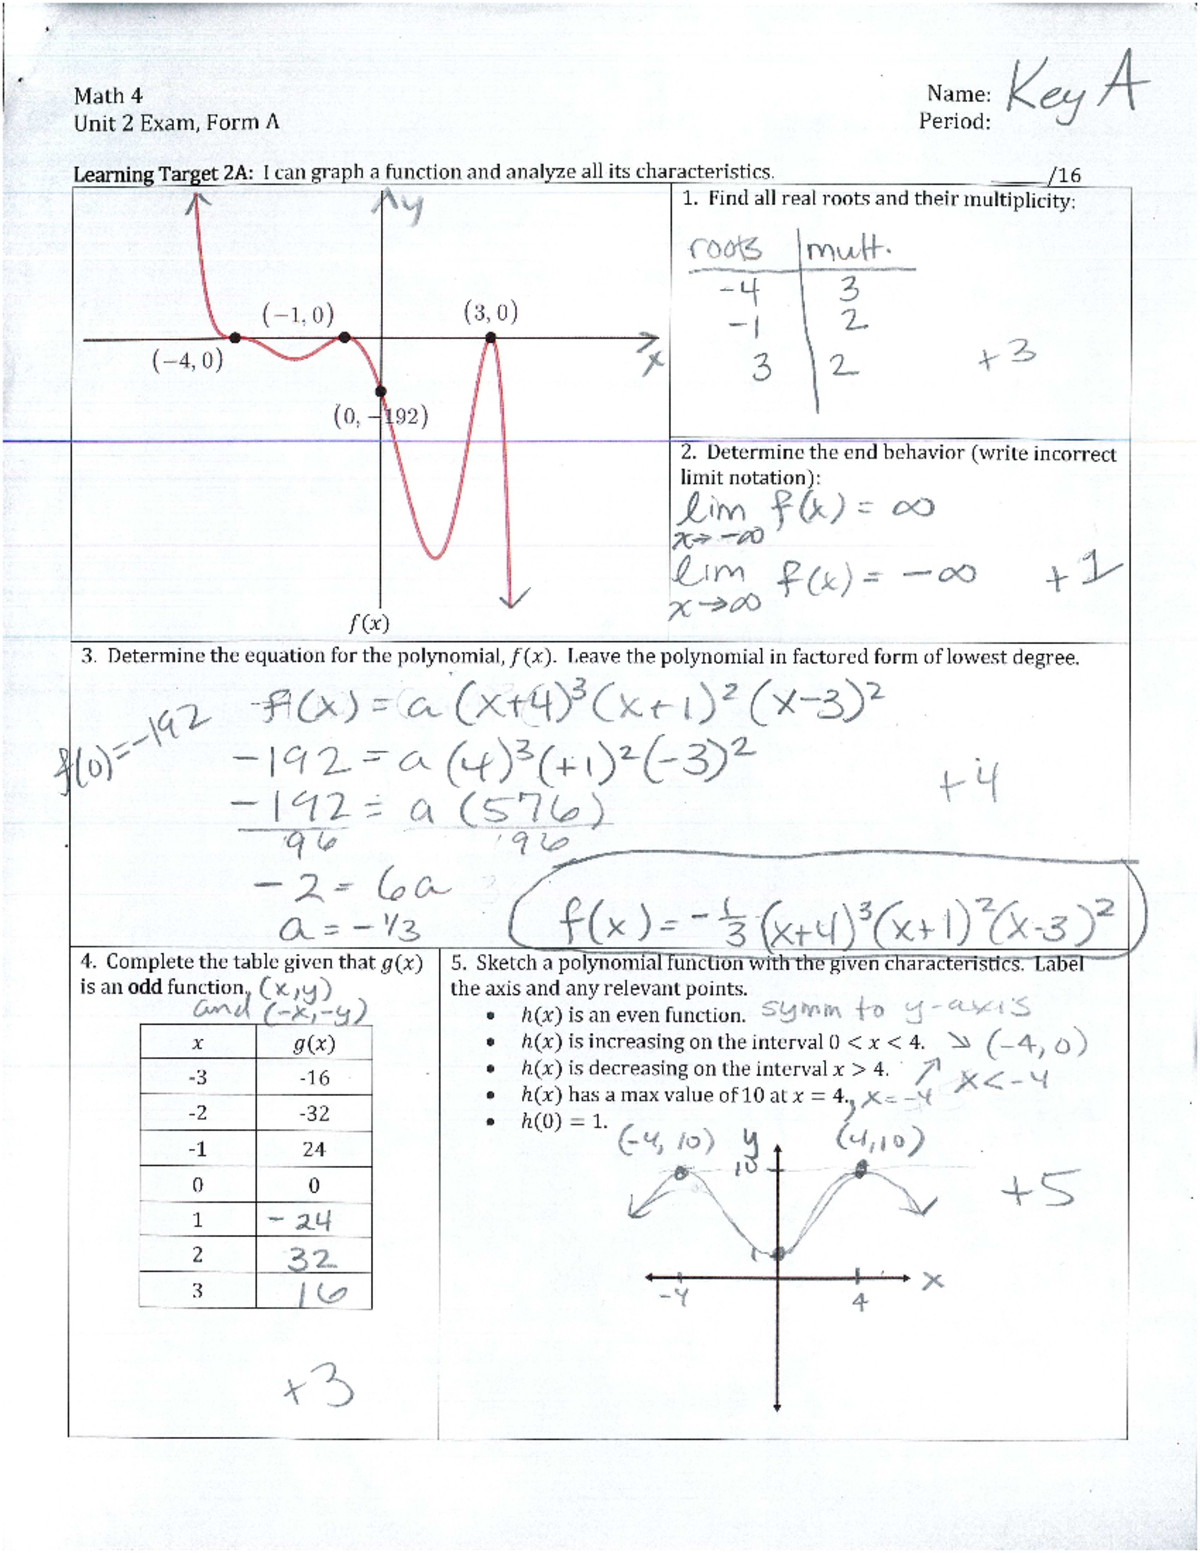 Math 4
Name: Key A
Unit 2 Exam, Form A
Period:
Learning Target 2A: I can graph a function and analyze all its characteristics.
___/16
y
(−1, 0)
(3, 0)
x
(−4, 0)
(0, −192)
f(x)
1. Find all real roots and their multiplicity:
roots mult.
-4 3
-1 2
3 2
+3
2. Determine the end behavior (write incorrect
limit notation):
lim f(x) = ∞
x→-∞
lim f(x) = -∞
x→∞
+1
3. Determine the equation for the polynomial, f(x). Leave the polynomial in factored form of lowest degree.
f(0)=-192
f(x) = a (x+4)³(x+1)²(x-3)²
-192 = a (4)³(+1)²(-3)²
-192 = a (576)
96 96
-2 = 6a
a = -1/3
+4
f(x) = -1/3 (x+4)³(x+1)²(x-3)²
4. Complete the table given that g(x)
is an odd function. (x,y)
and (-x,-y)
x g(x)
-3 -16
-2 -32
-1 24
0 0
1 -24
2 32
3 16
+3
5. Sketch a polynomial function with the given characteristics. Label
the axis and any relevant points.
• h(x) is an even function. symm to y-axis
• h(x) is increasing on the interval 0 < x < 4. ↘ (-4, 0)
• h(x) is decreasing on the interval x > 4. ↗ x<-4
• h(x) has a max value of 10 at x = 4., x=-4
• h(0) = 1.
(-4, 10) y (4,10)
10
+5
1
x
-4 4